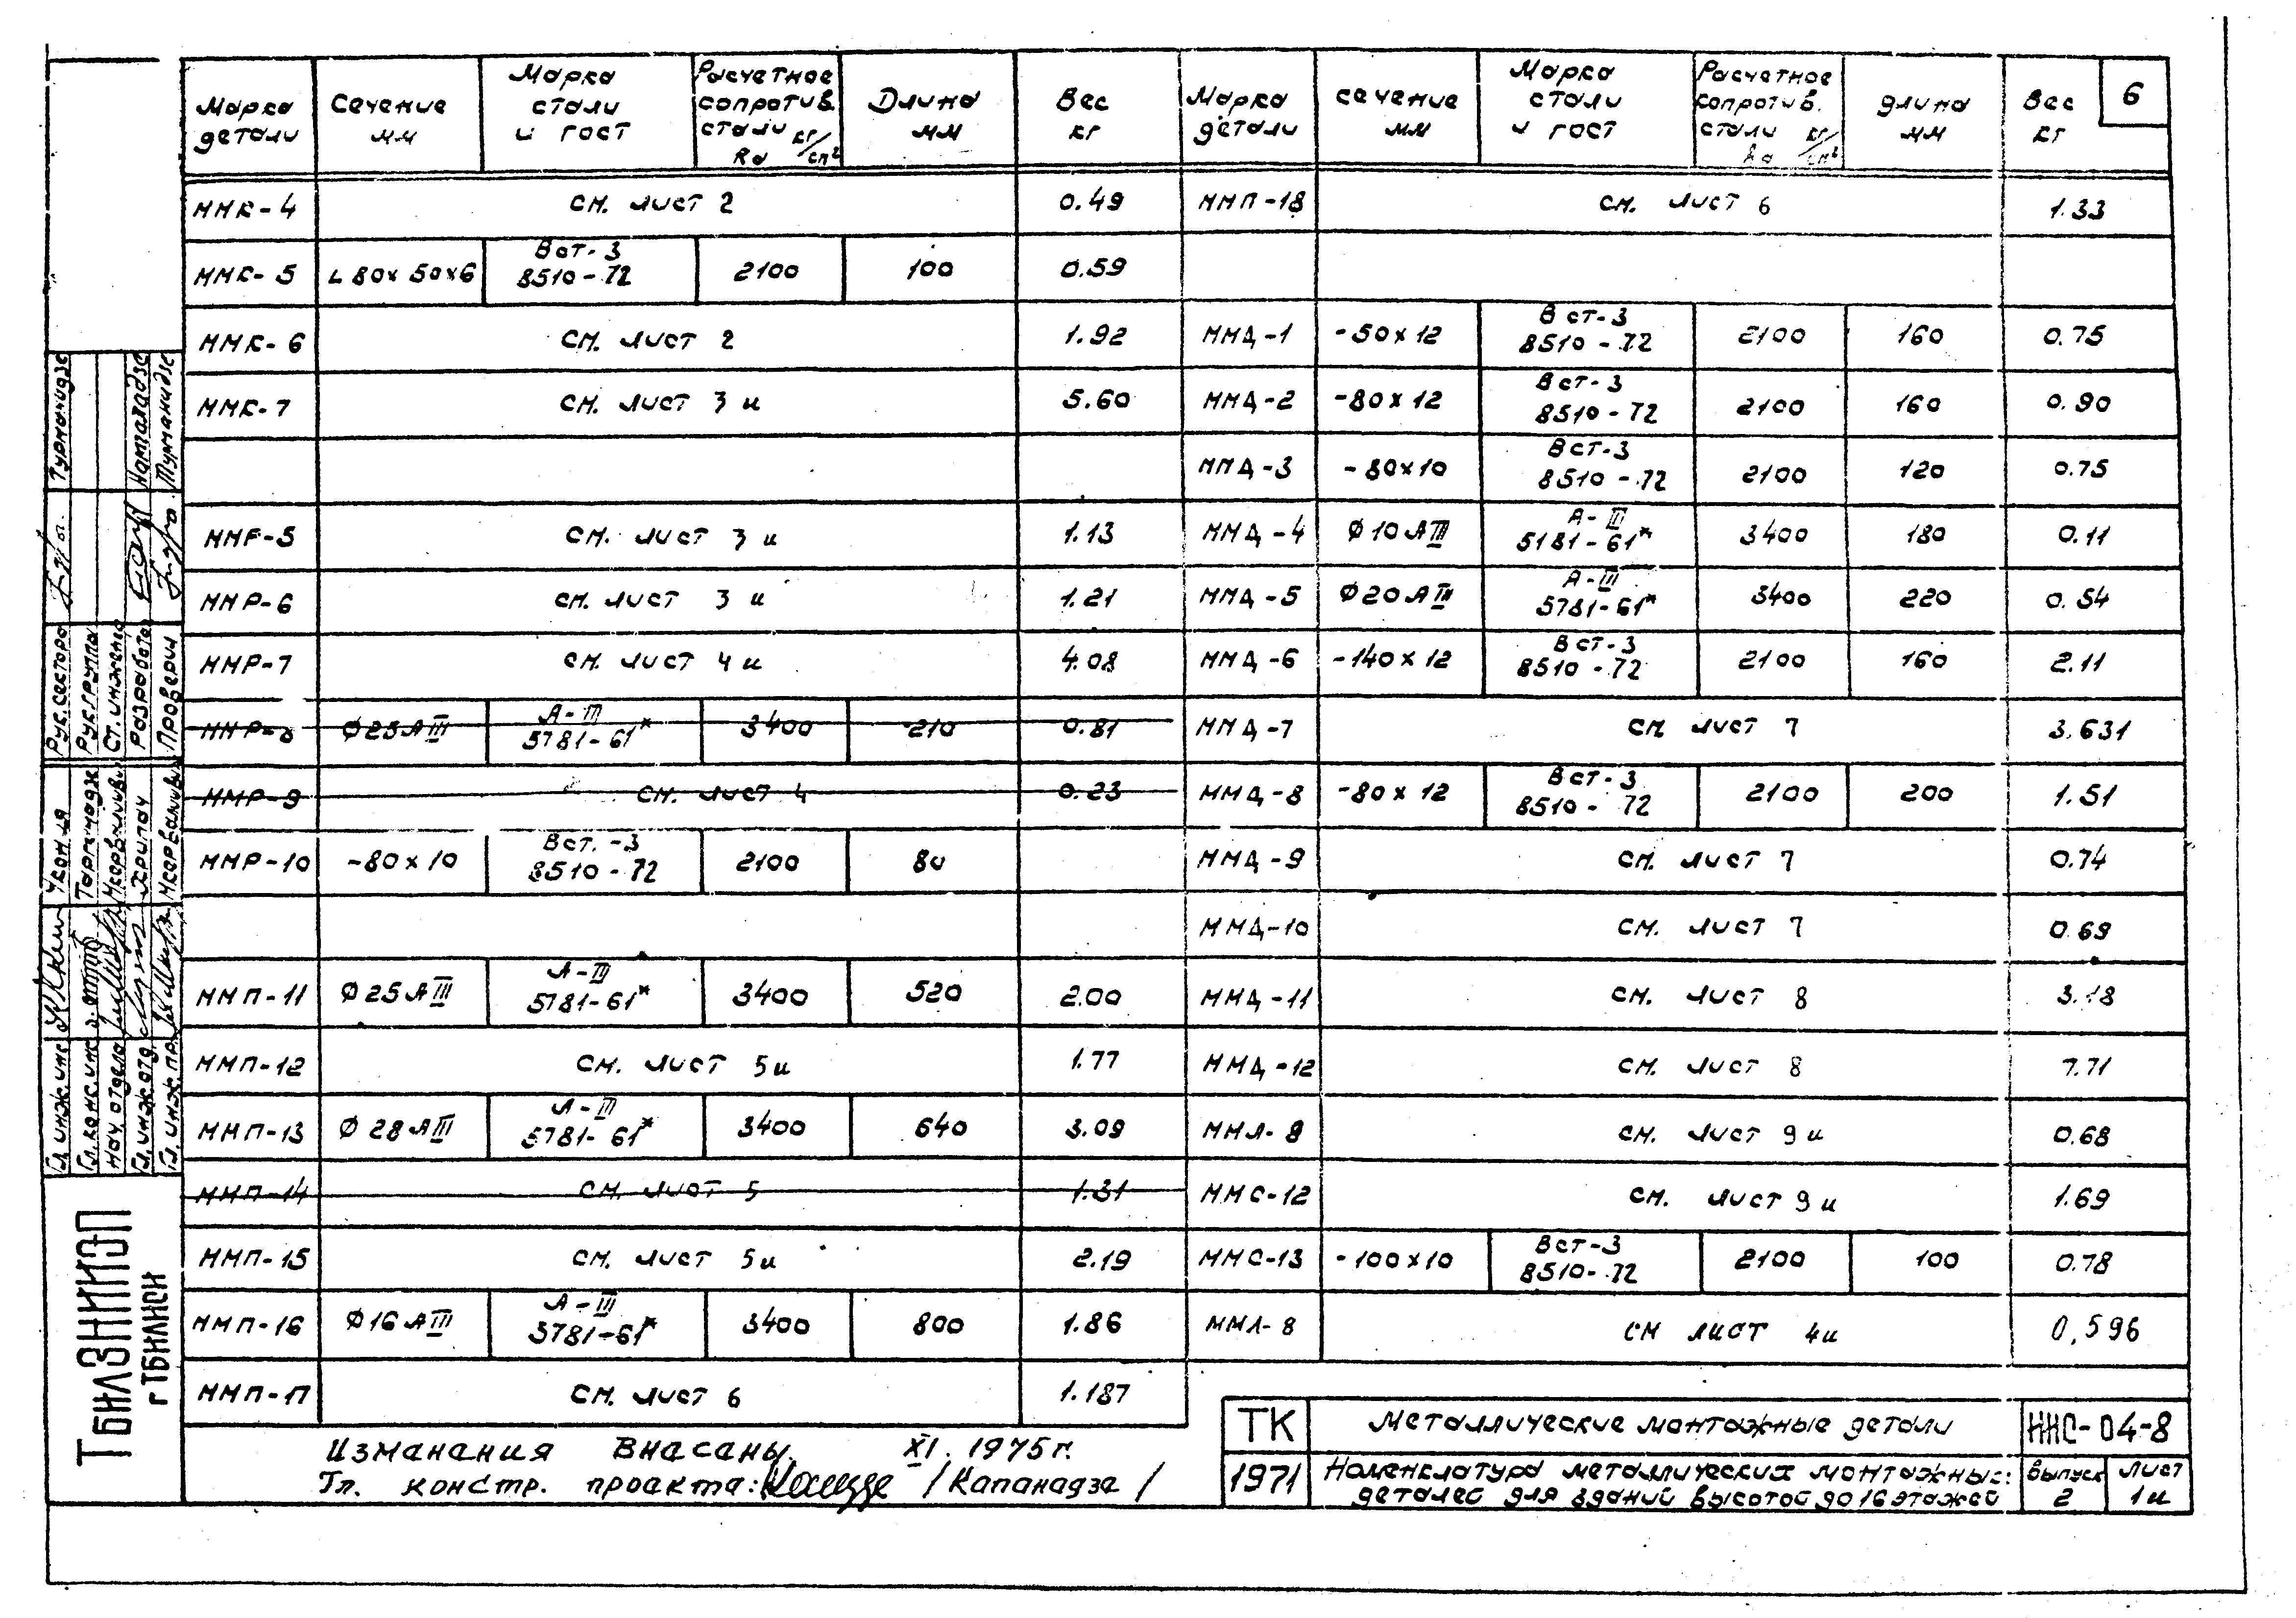 6
Марка детали | Сечение мм | Марка стали и гост | Расчетное сопротив. стали Ra кг/см² | Длина мм | Вес кг
ММК-4 | см. лист 2 | 0.49
ММК-5 | L 80х50х6 | Вст-3 8510-72 | 2100 | 100 | 0.59
ММК-6 | см. лист 2 | 1.92
ММК-7 | см. лист 3и | 5.60
ММР-5 | см. лист 3и | 1.13
ММР-6 | см. лист 3и | 1.21
ММР-7 | см. лист 4и | 4.08
ММР-8 | Ø25АIII | А-III 5781-61* | 3400 | 210 | 0.81
ММР-9 | см. лист 4 | 0.23
ММР-10 | -80х10 | Вст.-3 8510-72 | 2100 | 80
ММП-11 | Ø25АIII | А-III 5781-61* | 3400 | 520 | 2.00
ММП-12 | см. лист 5и | 1.77
ММП-13 | Ø28АIII | А-III 5781-61* | 3400 | 640 | 3.09
ММП-14 | см. лист 5 | 1.31
ММП-15 | см. лист 5и | 2.19
ММП-16 | Ø16АIII | А-III 5781-61* | 3400 | 800 | 1.86
ММП-17 | см. лист 6 | 1.187
Марка детали | сечение мм | Марка стали и гост | Расчетное сопротив. стали Ra кг/см² | длина мм | Вес кг
ММП-18 | см. лист 6 | 1.33
ММД-1 | -50х12 | Вст-3 8510-72 | 2100 | 160 | 0.75
ММД-2 | -80х12 | Вст-3 8510-72 | 2100 | 160 | 0.90
ММД-3 | -80х10 | Вст-3 8510-72 | 2100 | 120 | 0.75
ММД-4 | Ø10АIII | А-III 5181-61* | 3400 | 180 | 0.11
ММД-5 | Ø20АIII | А-III 5781-61* | 3400 | 220 | 0.54
ММД-6 | -140х12 | Вст-3 8510-72 | 2100 | 160 | 2.11
ММД-7 | см лист 7 | 3.631
ММД-8 | -80х12 | Вст-3 8510-72 | 2100 | 200 | 1.51
ММД-9 | см. лист 7 | 0.74
ММД-10 | см. лист 7 | 0.69
ММД-11 | см. лист 8 | 3.18
ММД-12 | см. лист 8 | 7.71
ММЛ-8 | см. лист 9и | 0.68
ММС-12 | см. лист 9и | 1.69
ММС-13 | -100х10 | Вст-3 8510-72 | 2100 | 100 | 0.78
ММЛ-8 | см лист 4и | 0,596
Изманания Внасаны. XI. 1975 г.
Гл. констр. проакта: /Капанадзе/
ТК | Металлические монтажные детали | ИИС-04-8
1971 | Номенклатура металлических монтажных деталей для зданий высотой до 16 этажей | Выпуск 2 | Лист 1и
ТбилЗНИИЭП
г Тбилиси
Рук.сектора
Рук.группы
Ст.инжене
Разработал
Проверил
Туманидзе
Гл.инж.инс
Гл.конс.инс
Нач.отдела
Гл.инж.отд.
Гл.инж.пр.